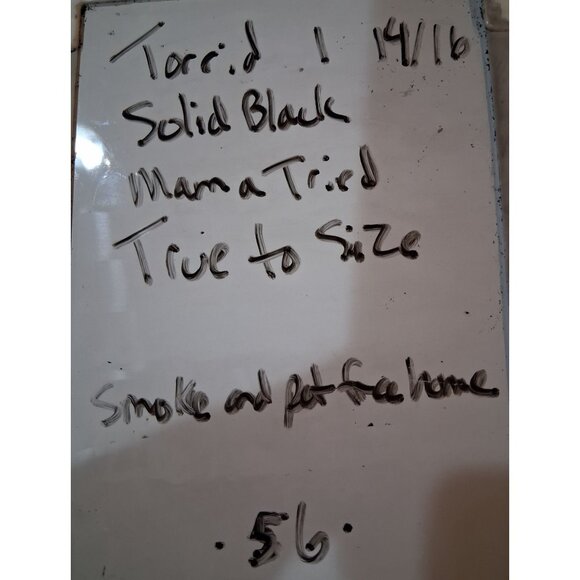 Torrid 1 14/16
Solid Black
Mama Tried
True to Size
Smoke and pet free home
. 56 .